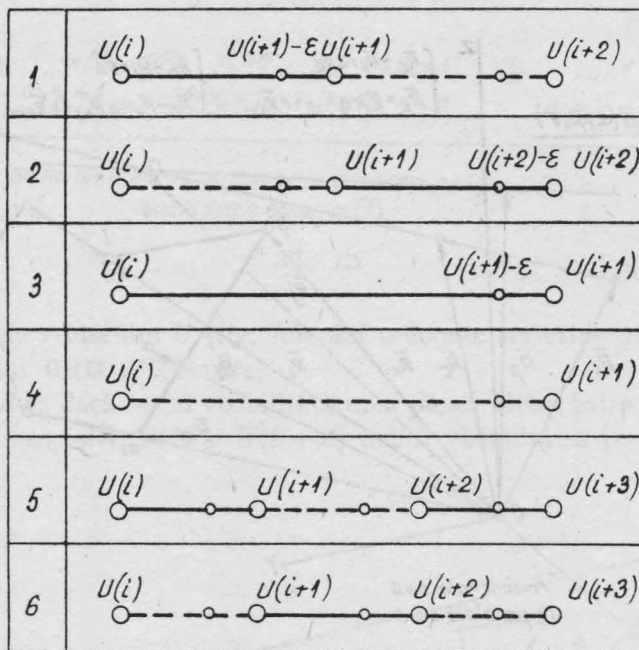 1 U(i) U(i+1)-ε U(i+1) U(i+2)
2 U(i) U(i+1) U(i+2)-ε U(i+2)
3 U(i) U(i+1)-ε U(i+1)
4 U(i) U(i+1)
5 U(i) U(i+1) U(i+2) U(i+3)
6 U(i) U(i+1) U(i+2) U(i+3)